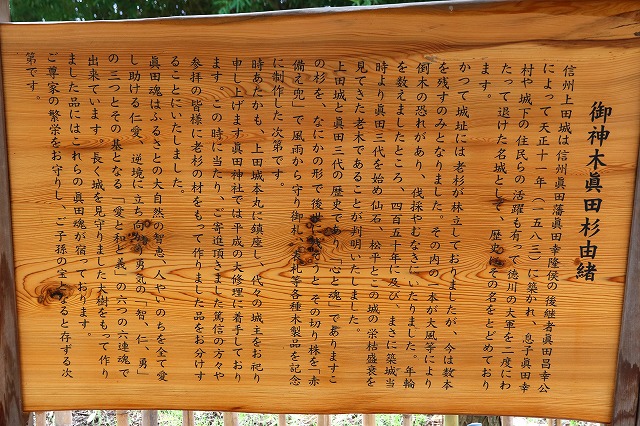 御神木眞田杉由緒
信州上田城は信州眞田藩眞田幸隆侯の後継者眞田昌幸公
によって天正十一年（一五八三）に築かれ、息子眞田幸
村や城下の住民らの活躍も有って徳川の大軍を二度にわ
たって退けた名城として、歴史にその名をとどめており
ます。
かつて城址には老杉が林立しておりましたが、今は数本
を残すのみとなりました。その内の一本が大風等により
倒木の恐れがあり、伐採やむなきにいたりました。年輪
を数えましたところ、四百五十年に及び、まさに築城当
時より眞田三代を始め仙石、松平とこの城の栄枯盛衰を
見てきた老木であることが判明いたしました。
上田城と眞田三代の歴史であり「心と魂」でありますこ
の杉を、なにかの形で後世に うと その切り株を「赤
備え兜」で風雨から守り御札、 札等各種木製品を記念
に制作した次第です。
時あたかも、上田城本丸に鎮座し、代々の城主をお祀り
申し上げます眞田神社では平成の大修理に着手しており
ます。この時に当たり、ご寄進頂きました篤信の方々や
参拝の皆様に老杉の材をもって作りました品をお分けす
ることにいたしました。
眞田魂はふるさとの大自然の智恵、人やいのちを全て愛
し助ける仁愛、逆境に立ち向かう勇気の「智、仁、勇」
の三つとその基となる「愛と和と義」の六つの六連魂で
出来ています。長く城を見守りました大樹をもって作り
ました品にはこれらの眞田魂が宿っております。
ご尊家の繁栄をお守りし、ご子孫の宝となると存ずる次
第です。